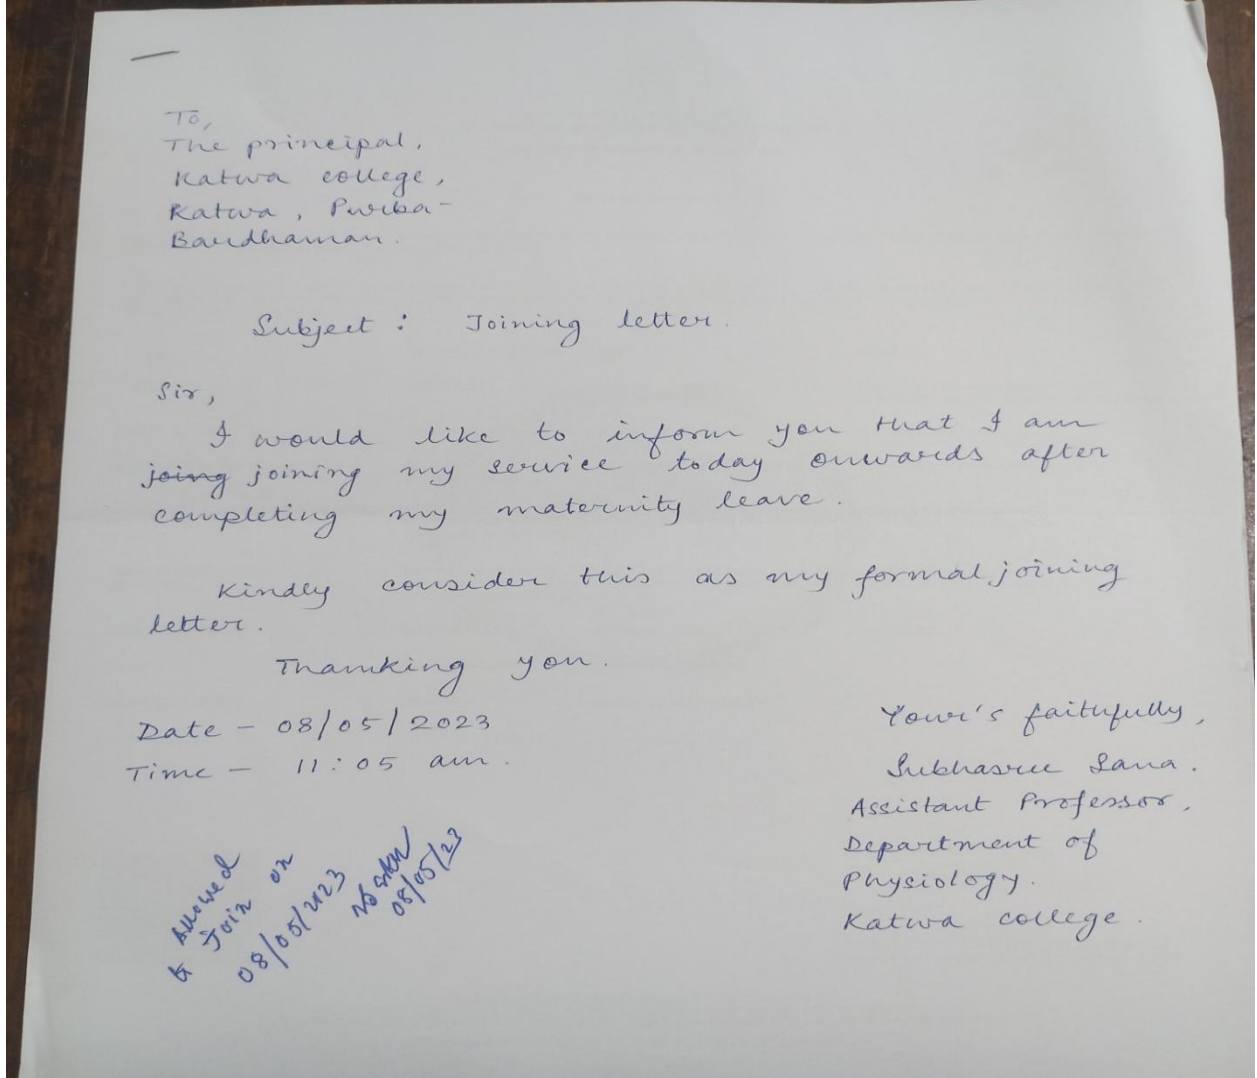 To,
The principal,
Katwa college,
Katwa, Purba-
Bardhaman.
Subject : Joining letter.
Sir,
I would like to inform you that I am
joing joining my service today onwards after
completing my maternity leave.
Kindly consider this as my formal joining
letter.
Thanking you.
Date - 08/05/2023
Time - 11:05 am.
Your's faithfully,
Subhasree Sana.
Assistant Professor,
Department of
Physiology.
Katwa college.
Allowed
to Join on
08/05/2023
08/05/23